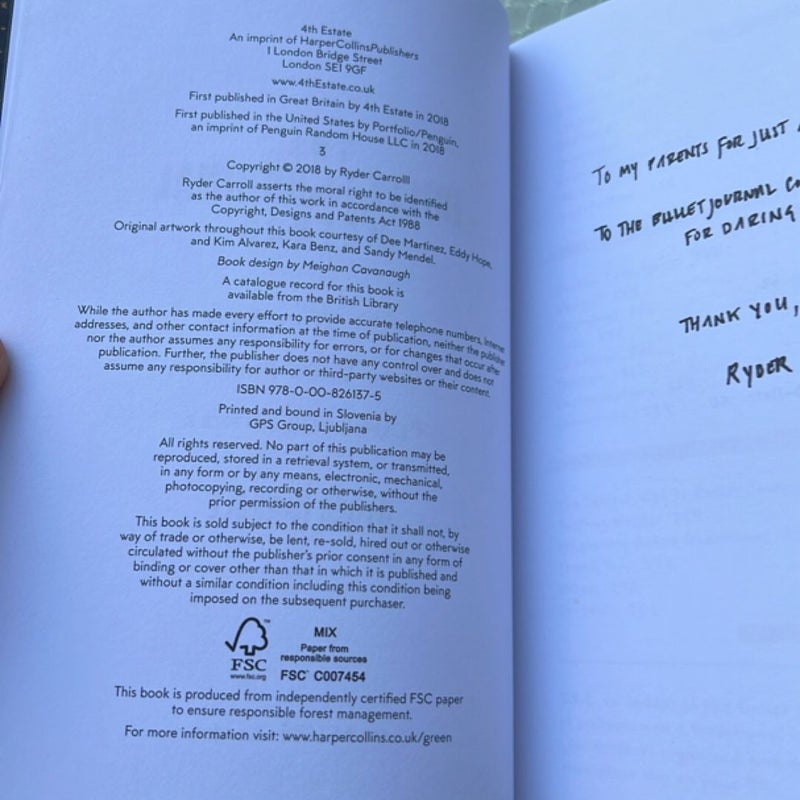 4th Estate
An imprint of HarperCollinsPublishers
1 London Bridge Street
London SE1 9GF
www.4thEstate.co.uk
First published in Great Britain by 4th Estate in 2018
First published in the United States by Portfolio/Penguin,
an imprint of Penguin Random House LLC in 2018
3
Copyright © 2018 by Ryder Carrolll
Ryder Carroll asserts the moral right to be identified
as the author of this work in accordance with the
Copyright, Designs and Patents Act 1988
Original artwork throughout this book courtesy of Dee Martinez, Eddy Hope,
and Kim Alvarez, Kara Benz, and Sandy Mendel.
Book design by Meighan Cavanaugh
A catalogue record for this book is
available from the British Library
While the author has made every effort to provide accurate telephone numbers, Internet
addresses, and other contact information at the time of publication, neither the publisher
nor the author assumes any responsibility for errors, or for changes that occur after
publication. Further, the publisher does not have any control over and does not
assume any responsibility for author or third-party websites or their content.
ISBN 978-0-00-826137-5
Printed and bound in Slovenia by
GPS Group, Ljubljana
All rights reserved. No part of this publication may be
reproduced, stored in a retrieval system, or transmitted,
in any form or by any means, electronic, mechanical,
photocopying, recording or otherwise, without the
prior permission of the publishers.
This book is sold subject to the condition that it shall not, by
way of trade or otherwise, be lent, re-sold, hired out or otherwise
circulated without the publisher's prior consent in any form of
binding or cover other than that in which it is published and
without a similar condition including this condition being
imposed on the subsequent purchaser.
FSC
www.fsc.org
MIX
Paper from
responsible sources
FSC® C007454
This book is produced from independently certified FSC paper
to ensure responsible forest management.
For more information visit: www.harpercollins.co.uk/green
TO MY PARENTS FOR JUST
TO THE BULLET JOURNAL
FOR DARING
THANK YOU,
RYDER